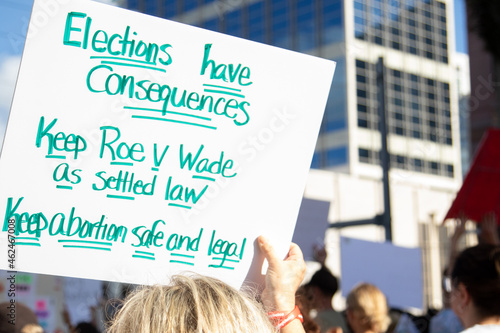 Elections have
Consequences
Keep Roe v Wade
as settled law
Keep abortion safe and legal
Adobe Stock | #462467008